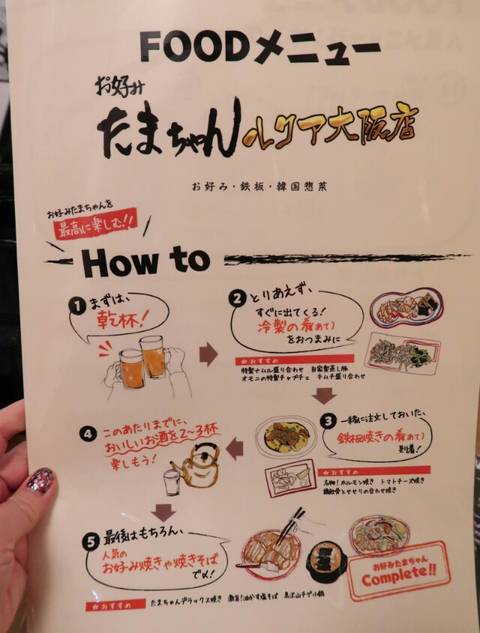 FOODメニュー
お好み
たまちゃん ルクア大阪店
お好み・鉄板・韓国惣菜
お好みたまちゃんを
最高に楽しむ!!
How to
1 まずは、
乾杯!
2 とりあえず、
すぐに出てくる!
冷製の肴(あて)
をおつまみに
★おすすめ
特製ナムル盛り合わせ 自家製蒸し豚
オモニの特製チャプチェ キムチ盛り合わせ
3 一緒に注文しておいた、
鉄板焼きの肴(あて)
到着!
★おすすめ
名物!ホルモン焼き トマトチーズ焼き
4 このあたりまでに、
おいしいお酒を2~3杯
楽しもう!
5 最後はもちろん、
人気の
お好み焼きや焼きそば
で〆!
★おすすめ
たまちゃんデラックス焼き 激旨!油かす塩そば
お好みたまちゃん
Complete!!